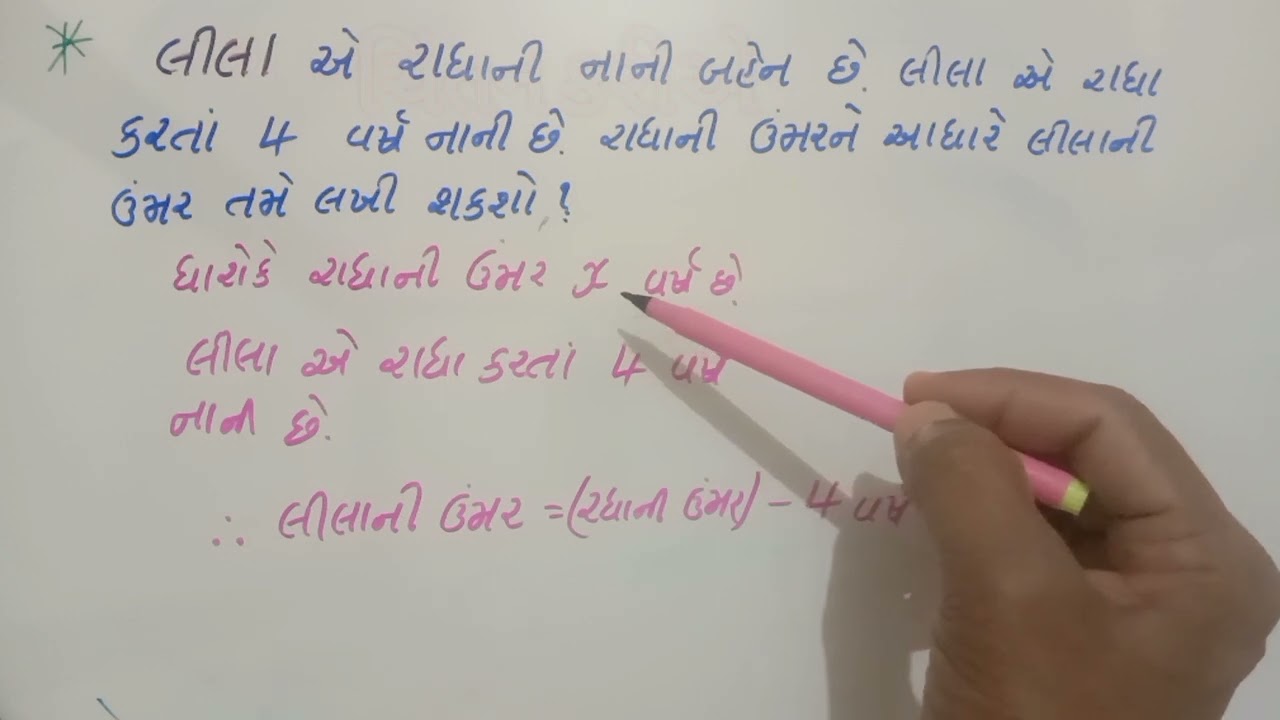 * લીલા એ રાધાની નાની બહેન છે. લીલા એ રાધા
કરતાં 4 વર્ષ નાની છે. રાધાની ઉંમરને આધારે લીલાની
ઉંમર તમે લખી શકશો?
ધારોકે રાધાની ઉંમર x વર્ષ છે.
લીલા એ રાધા કરતાં 4 વર્ષ
નાની છે.
∴ લીલાની ઉંમર = (રધાની ઉંમર) - 4 વર્ષ